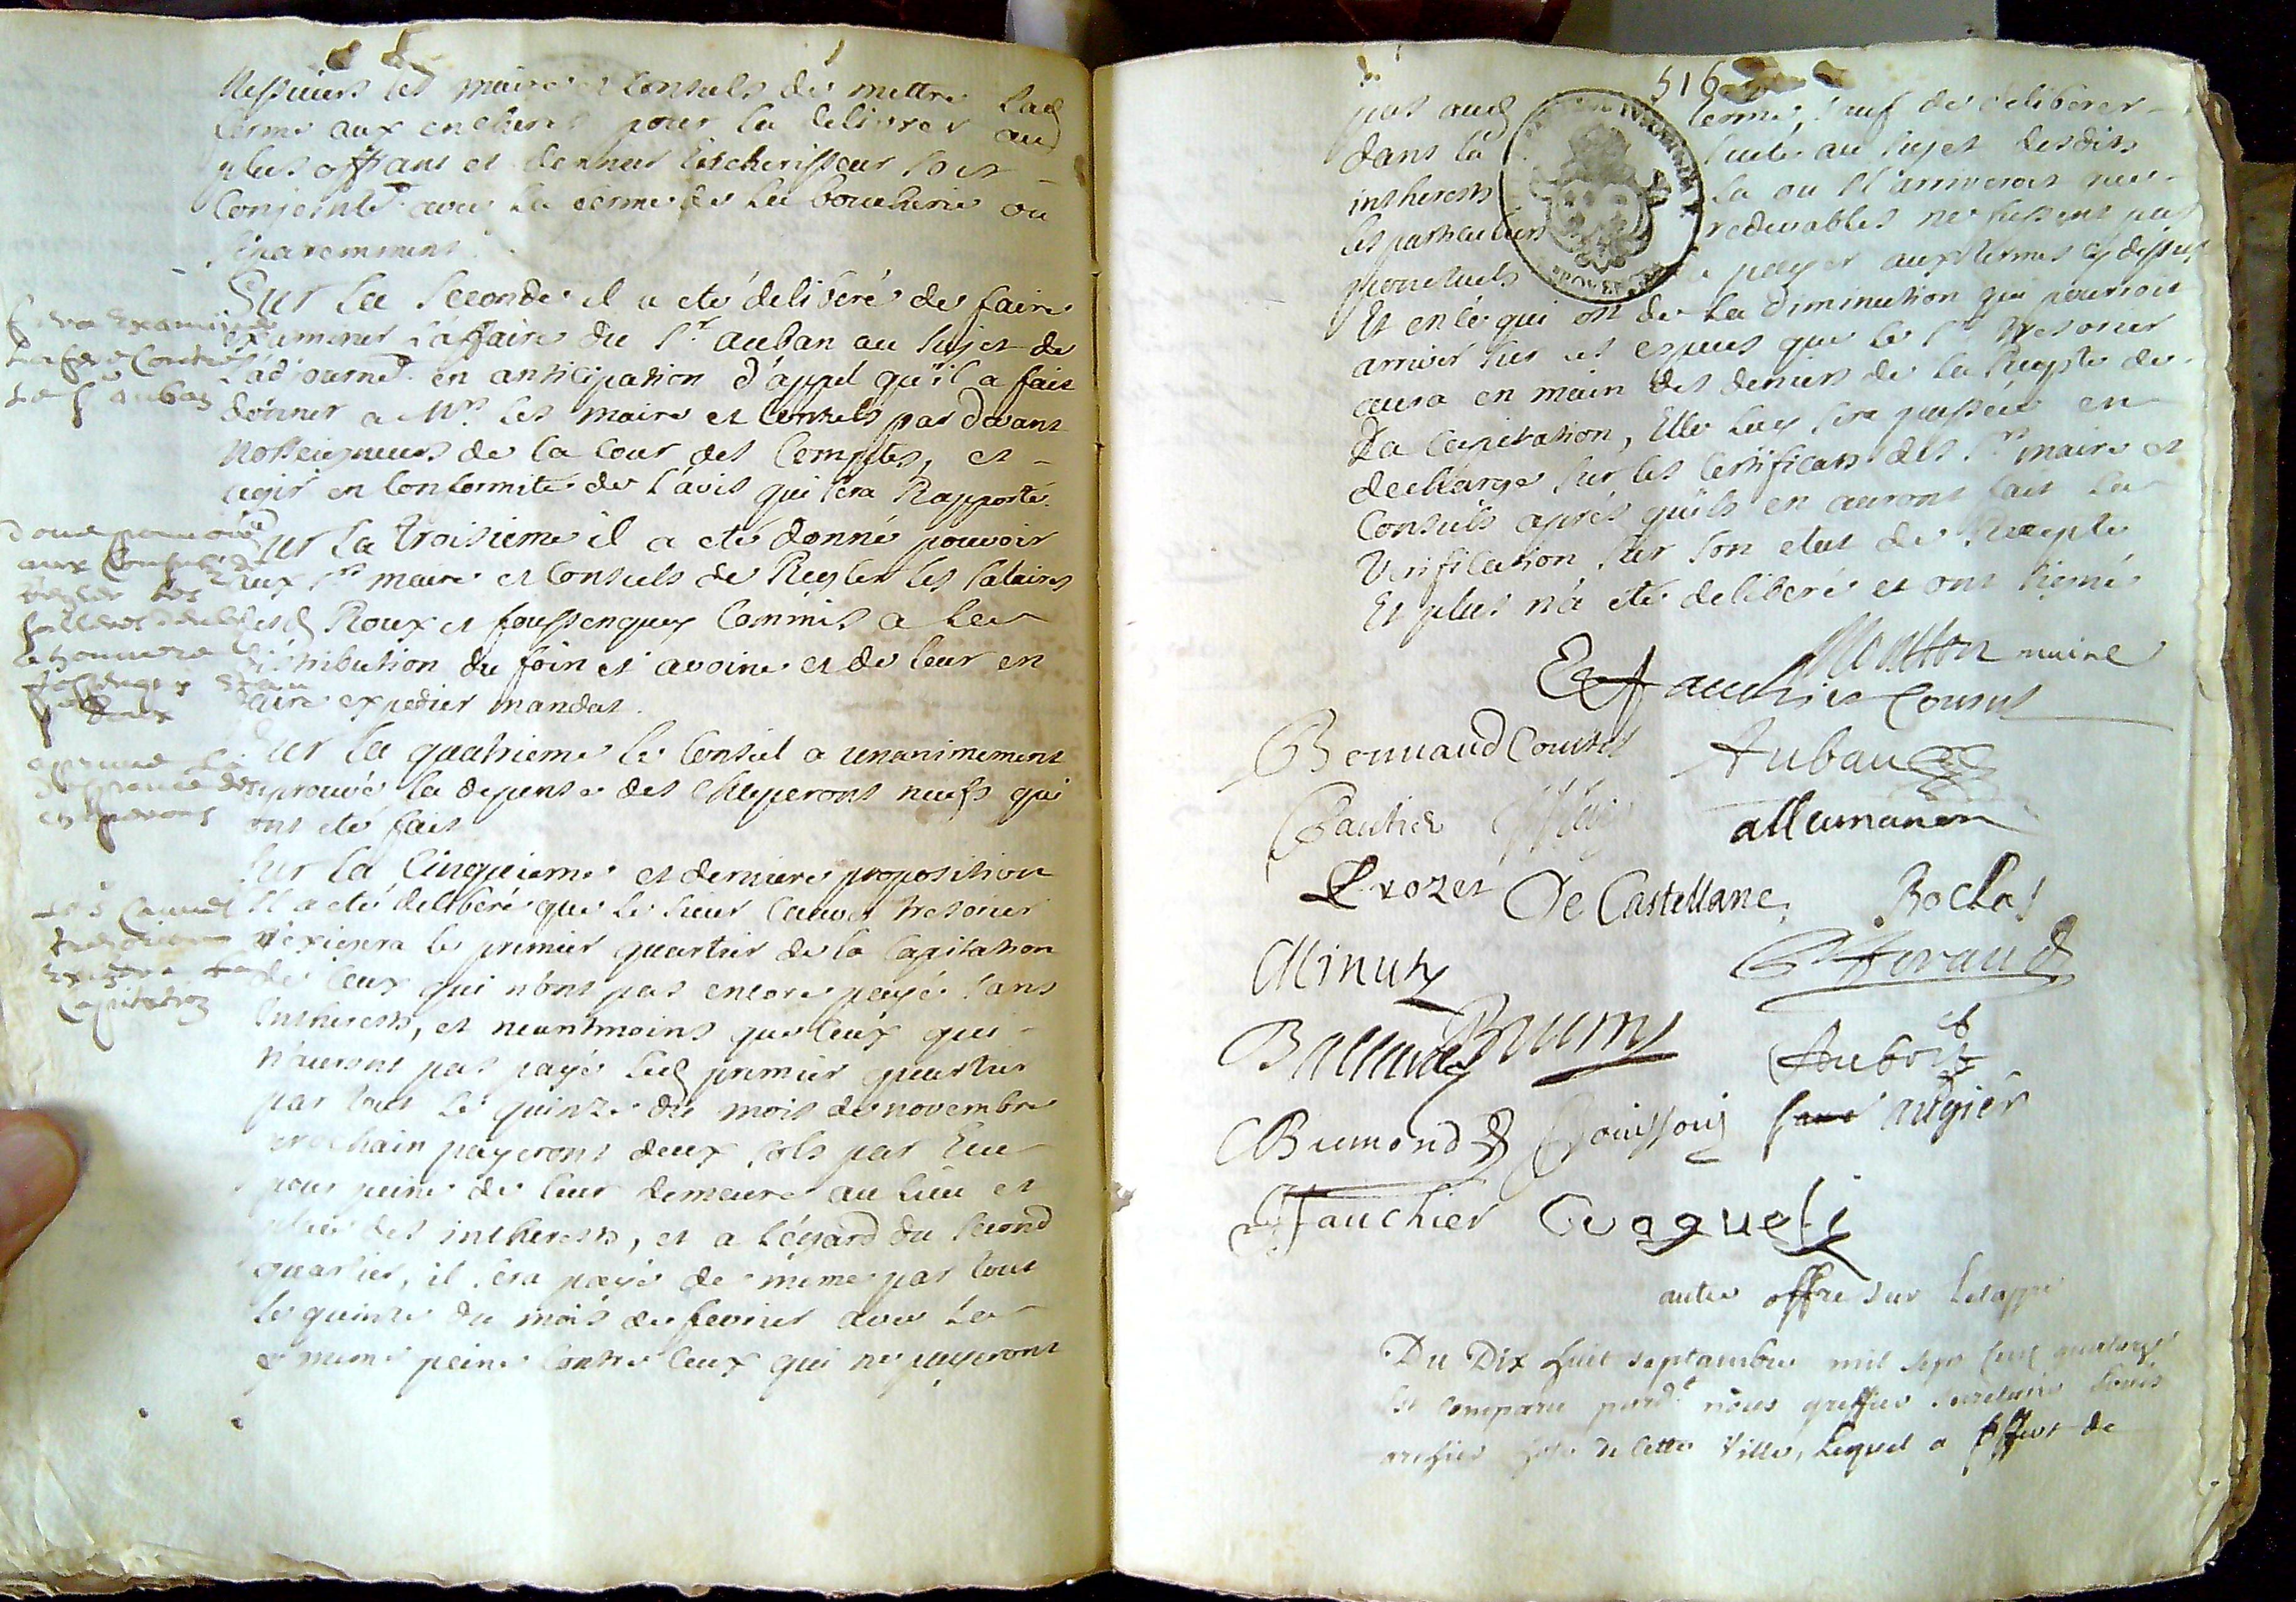 Messieurs les maire et Consuls de mettre lad
ferme aux encheres pour la delivrer au
plus offrant et dernier Encherisseur soit
Conjointe.t avec la ferme de la boucherie ou
separemment.
Sur la seconde il a eté deliberé de faire
examiner l'affaire du Sr auban au sujet de
l'adjournet en anticipation d'appel qu'il a fait
donner a Mrs les maire et Consuls par devant
Nosseigneurs de la Cour des Comptes, et
agir en Conformité de l'avis qui sera Rapporté.
fera Examiner
Lafere Contre
Le Sr auban
Sur la troisieme il a eté donné pouvoir
aux Srs maire et Consuls de Regler les salaires
desd Roux et foussenquy Commis a la
distribution du foin et avoine et de leur en
faire expedier mandat.
donne pouvoir
aux Consuls de
Regler les
Sur la quatrieme le Conseil a unanimement
aprouvé la depense des Chaperons neufs qui
ont eté fait
aprouve la
depance des
chaperons
Sur la Cinquieme et derniere proposition
Il a eté deliberé que le sieur Cauvet tresorier
n'exigera le premier quartier de la Capitation
de Ceux qui n'ont pas encore payé sans
Intherests, et neantmoins que Ceux qui
n'auront pas payé led premier quartier
par tout le quinze du mois de novembre
prochain payeront deux sols par Ecu
pour peine de leur demeure au lieu et
place des intherests, et a l'égard du second
quartier, il sera payé de meme par tout
le quinze du mois de fevrier avec la
meme peine Contre Ceux qui ne payeront
Le Sr Cauvet
tresorier
Exigera la
Capitation
516
pas aud terme, sauf de deliberer
dans la suite au sujet desdits
intherests la ou il arriveroit que
les particuliers redevables ne fussent pas
ponctuels a payer aux termes cy dessus
Et en ce qui est de la Diminution qui pourroit
arriver sur les especes que le Sr tresorier
aura en main des deniers de la Recepte de
la Capitation, Elle luy sera passée en
decharge sur les Certificats des Srs maire et
Consuls aprés qu'ils en auront fait la
Verification sur son etat de Recepte
Et plus n'a eté deliberé et ont signé
Moutton maire
fauchier Consul
Bernard Consul Auban
Gautier allemanon
Crozet De Castellane Roclas
Minuty Giraud
Brun
Aubert
Bremond Bouisson augier
fauchier
autre offre sur Letappe
Du Dix huit septambre mil sept cens quatorze
Est comparu pardt nous greffier secretaire Louis
hote de Cette Ville, Lequel a offert de